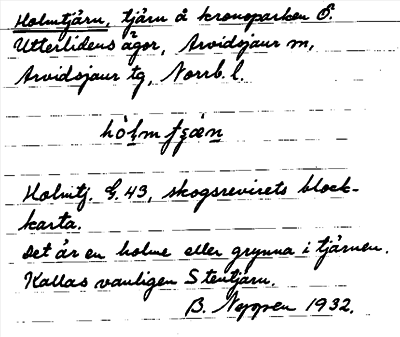 Holmtjärn, tjärn å kronoparken Ö.
Utterlidens ägor, Arvidsjaur m,
Arvidsjaur tg, Norrb. l.
hòlmfjän
Holmtj. G. 43, skogsrevirets block-
karta.
Det är en holme eller grynna i tjärnen.
Kallas vanligen Stentjärn.
B. Neppen 1932.